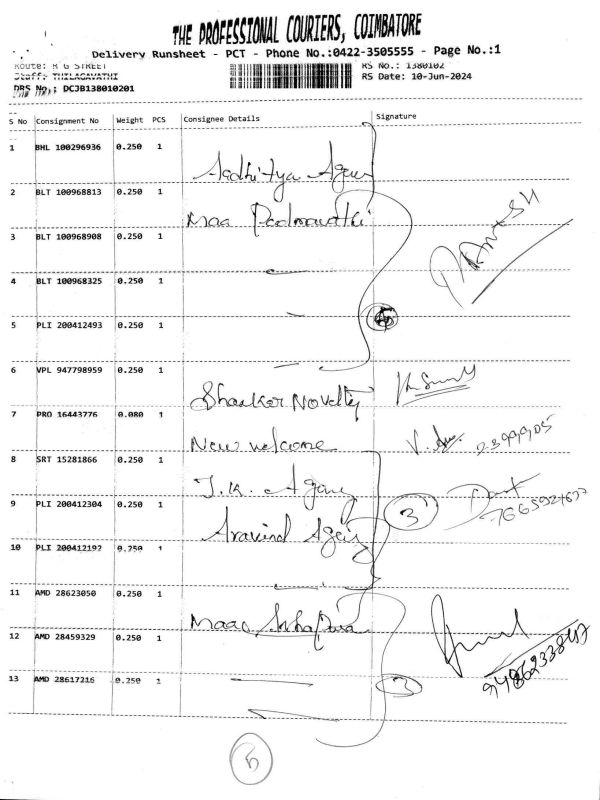 THE PROFESSIONAL COURIERS, COIMBATORE
Delivery Runsheet - PCT - Phone No.:0422-3505555 - Page No.:1
Route: R G STREET
RS No.: 1380102
Staff: THILAGAVATHI
RS Date: 10-Jun-2024
DRS No.: DCJB138010201
S No Consignment No Weight PCS Consignee Details Signature
1 BHL 100296936 0.250 1
2 BLT 100968813 0.250 1 Maa
3 BLT 100968908 0.250 1
4 BLT 100968325 0.250 1
5 PLI 200412493 0.250 1
6 VPL 947798959 0.250 1 Shankar Novelty
7 PRO 16443776 0.080 1 New welcome
8 SRT 15281866 0.250 1 J.K. Agency
9 PLI 200412304 0.250 1 Aravind 3
10 PLI 200412192 0.250 1
11 AMD 28623050 0.250 1
12 AMD 28459329 0.250 1
13 AMD 28617216 0.250 1 3
5